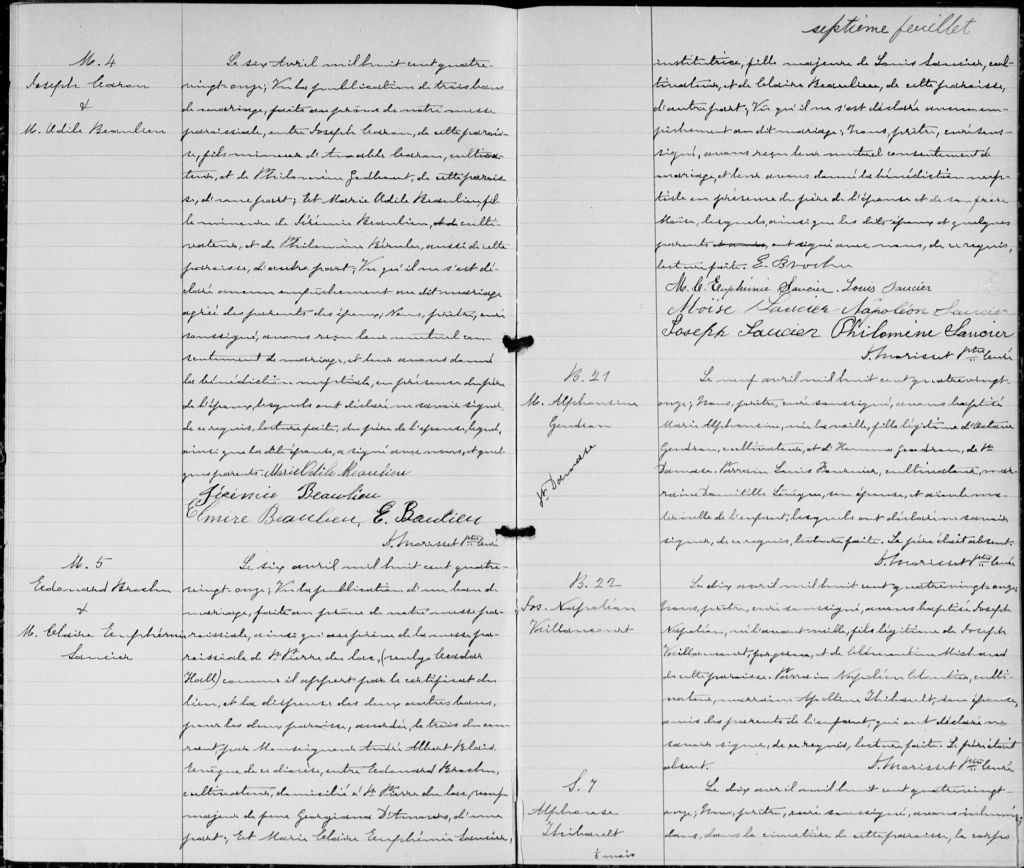 M. 4
Joseph Caron
&
M. Adile Beaulieu
Le six Avril mil huit cent quatre-
vingt-onze; Vu la publication de trois bans
de mariage, faite au prône de notre messe
paroissiale, entre Joseph Caron, de cette parois-
se, fils mineur d'Amable Caron, cultiva-
teur, et de Philomène Godbout, de cette parois-
se, d'une part; Et Marie Adile Beaulieu, fil-
le mineure de Jérémie Beaulieu, culti-
vateur, et de Philomène Bérubé, aussi de cette
paroisse, d'autre part; Vu qu'il ne s'est dé-
claré aucun empêchement au dit mariage
agréé des parents des époux; Nous, prêtre, curé
soussigné, avons reçu leur mutuel con-
sentement de mariage, et leur avons donné
la bénédiction nuptiale, en présence du père
de l'époux, lesquels ont déclaré ne savoir signer,
de ce requis, lecture faite, du père de l'épouse, lequel,
ainsi que la dite épouse, a signé avec nous, et quel-
ques parents. Marie Adile Beaulieu
Jérémie Beaulieu
Elmire Beaulieu, E. Banlieu
D. Morisset Ptre Curé
M. 5
Edouard Brochu
&
M. Claire Euphémie
Saucier
Le six avril mil huit cent quatre-
vingt-onze; Vu la publication d'un ban de
mariage, faite au prône de notre messe pa-
roissiale, ainsi qu'au prône de la messe pa-
roissiale de St Pierre du lac, (vulgo Cedar
Hall) comme il appert par le certificat du
lieu, et la dispense des deux autres bans,
pour les deux paroisses, accordée, le trois du cou-
rant par Monseigneur André Albert Blais,
Evêque de ce diocèse, entre Edouard Brochu,
cultivateur, domicilié à St Pierre du lac, veuf
majeur de feue Georgiana D'Amours, d'une
part; Et Marie Claire Euphémie Saucier,
septième feuillet
institutrice, fille majeure de Louis Saucier, cul-
tivateur, et de Claire Beaulieu, de cette paroisse,
d'autre part; Vu qu'il ne s'est déclaré aucun em-
pêchement au dit mariage; Nous, prêtre, curé sous-
signé, avons reçu leur mutuel consentement de
mariage, et leur avons donné la bénédiction nup-
tiale en présence du père de l'épouse et de son frère
Moïse, lesquels, ainsi que les dits époux et quelques
parents ont signé avec nous, de ce requis,
lecture faite. E. Brochu
M. C. Euphémie Saucier. Louis Saucier
Moïse Saucier Napoléon Saucier
Joseph Saucier Philomène Saucier
D. Morisset Ptre Curé
B. 21
M. Alphonsine
Gendron
St Damase
Le neuf avril mil huit cent quatrevingt-
onze; Nous, prêtre, curé soussigné, avons baptisé
Marie Alphonsine, née la veille, fille légitime d'Octave
Gendron, cultivateur, et d'Hemma Gendron, de St
Damase. Parrain Louis Fournier, cultivateur, mar-
raine Domitille Lévêque, son épouse, et aieule ma-
ternelle de l'enfant, lesquels ont déclaré ne savoir
signer, de ce requis, lecture faite. Le père était absent.
D. Morisset Ptre Curé
B. 22
Jos. Napoléon
Vaillancourt
Le dix avril mil huit cent quatrevingt-onze;
Nous, prêtre, curé soussigné, avons baptisé Joseph
Napoléon, né l'avant veille, fils légitime de Joseph
Vaillancourt, forgeron, et de Clémentine Michaud
de cette paroisse. Parrain Napoléon, culti-
vateur, marraine Apolline Thibault, son épouse,
amis des parents de l'enfant, qui ont déclaré ne
savoir signer, de ce requis, lecture faite. Le père était
absent. D. Morisset Ptre Curé
S. 7
Alphonse
Thibault
mois
Le dix avril mil huit cent quatrevingt-
onze; Nous, prêtre, curé soussigné, avons inhumé
dans le cimetière de cette paroisse, le corps